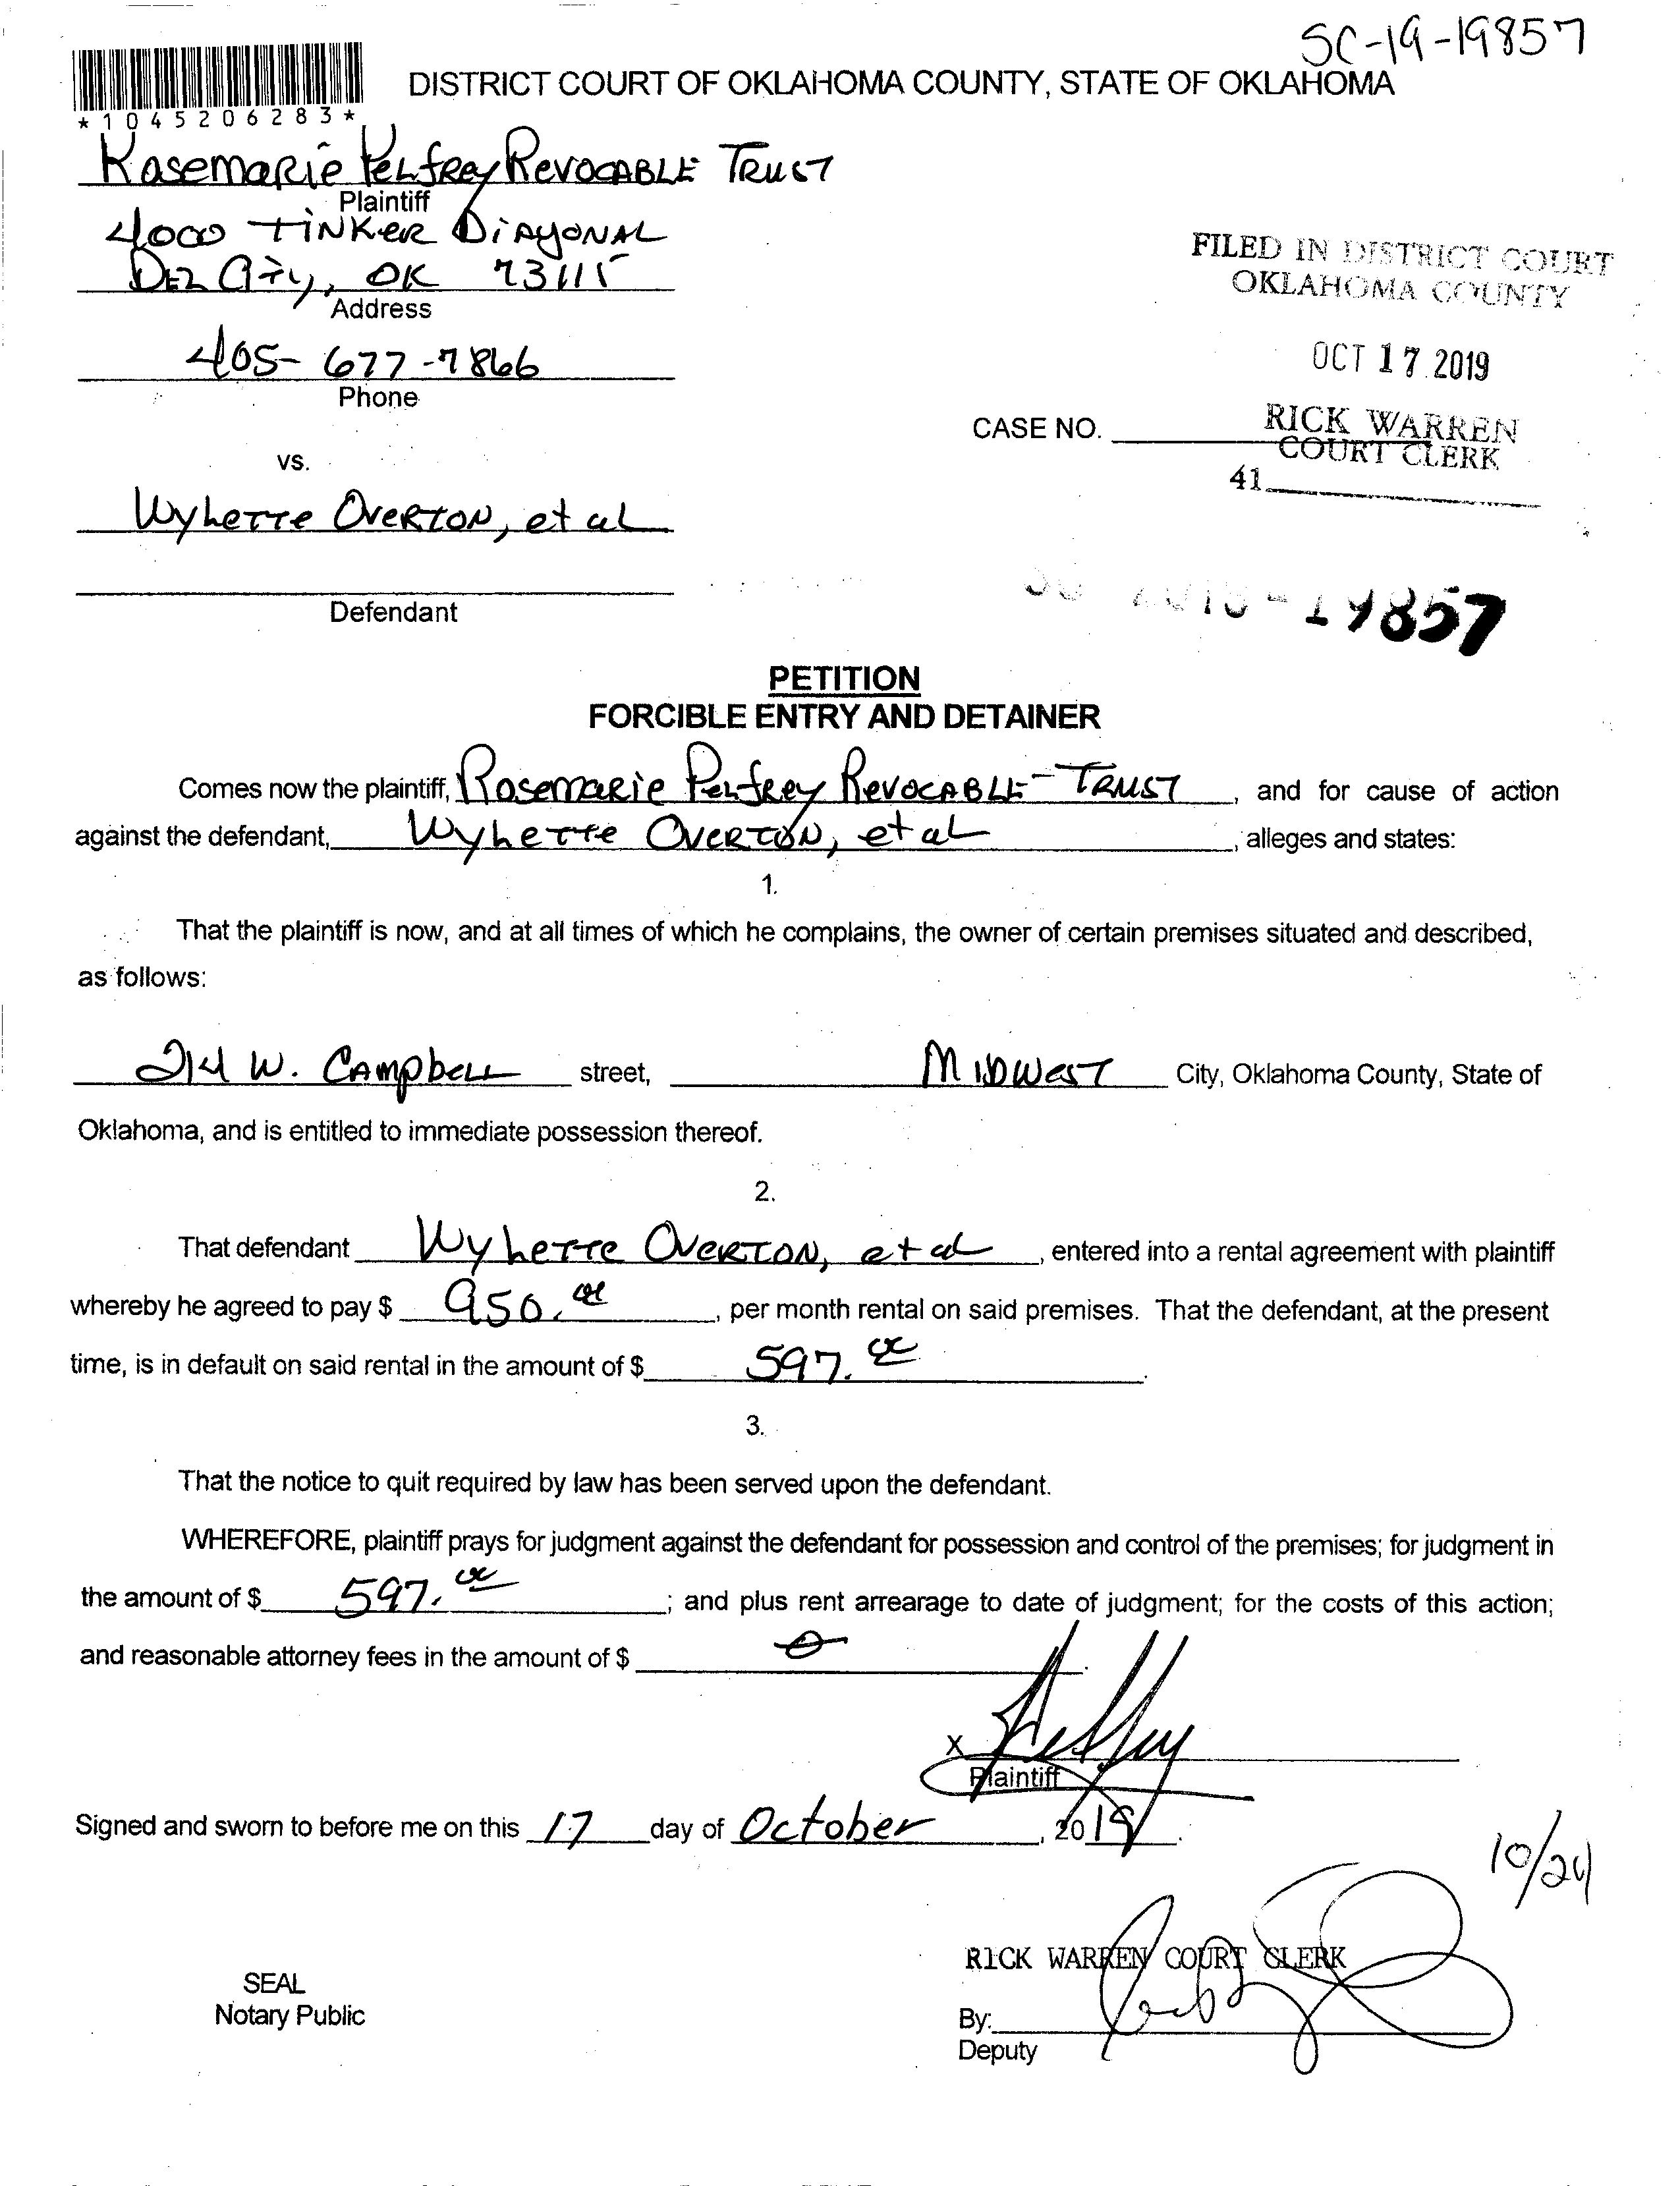 SC-19-19857
*1045206283*
DISTRICT COURT OF OKLAHOMA COUNTY, STATE OF OKLAHOMA
Rosemarie Pelfrey Revocable Trust
Plaintiff
4000 Tinker Diagonal
Del City, OK 73115
Address
405-677-7866
Phone
FILED IN DISTRICT COURT
OKLAHOMA COUNTY
OCT 17 2019
RICK WARREN
COURT CLERK
41
CASE NO.
vs.
Wyhette Overton, et al
Defendant
19857
PETITION
FORCIBLE ENTRY AND DETAINER
Comes now the plaintiff, Rosemarie Pelfrey Revocable Trust, and for cause of action
against the defendant, Wyhette Overton, et al, alleges and states:
1.
That the plaintiff is now, and at all times of which he complains, the owner of certain premises situated and described,
as follows:
214 W. Campbell street, Midwest City, Oklahoma County, State of
Oklahoma, and is entitled to immediate possession thereof.
2.
That defendant Wyhette Overton, et al, entered into a rental agreement with plaintiff
whereby he agreed to pay $ 950.00, per month rental on said premises. That the defendant, at the present
time, is in default on said rental in the amount of $ 597.00.
3.
That the notice to quit required by law has been served upon the defendant.
WHEREFORE, plaintiff prays for judgment against the defendant for possession and control of the premises; for judgment in
the amount of $ 597.00; and plus rent arrearage to date of judgment; for the costs of this action;
and reasonable attorney fees in the amount of $ 0.
X
Plaintiff
Signed and sworn to before me on this 17 day of October, 2019.
10/24
RICK WARREN COURT CLERK
SEAL
Notary Public
By:
Deputy